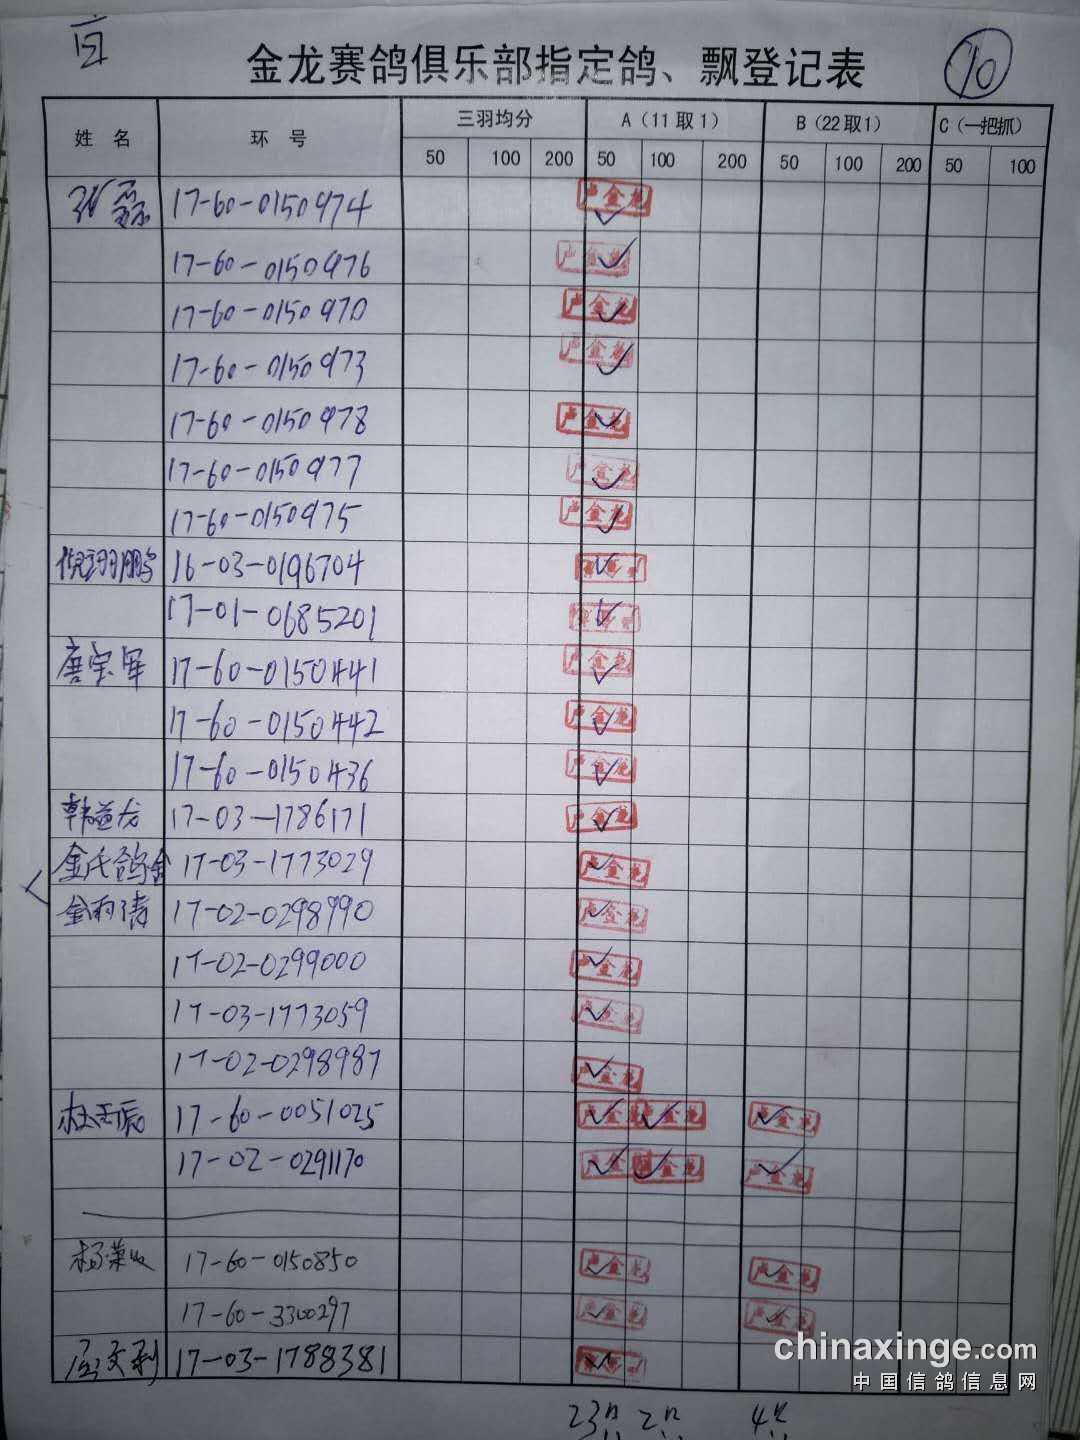 金龙赛鸽俱乐部指定鸽、飘登记表
10
姓 名 环 号 三羽均分 A（11取1） B（22取1） C（一把抓）
50 100 200 50 100 200 50 100 200 50 100
张磊 17-60-0150974 卢金龙 ✓
17-60-0150976 卢金龙 ✓
17-60-0150970 卢金龙 ✓
17-60-0150973 卢金龙 ✓
17-60-0150978 卢金龙 ✓
17-60-0150977 卢金龙 ✓
17-60-0150975 卢金龙 ✓
倪翔鹏 16-03-0196704 ✓
17-01-0685201 ✓
唐宝军 17-60-0150441 卢金龙 ✓
17-60-0150442 卢金龙 ✓
17-60-0150436 卢金龙 ✓
韩益龙 17-03-1786171 卢金龙 ✓
金氏鸽舍 17-03-1773029 卢金龙 ✓
金雨涛 17-02-0298990 卢金龙 ✓
17-02-0299000 卢金龙 ✓
17-03-1773059 卢金龙 ✓
17-02-0298987 卢金龙 ✓
杜玉振 17-60-0051025 卢金龙 ✓ 卢金龙 ✓ 卢金龙 ✓
17-02-0291170 卢金龙 ✓ 卢金龙 ✓ 卢金龙 ✓
17-60-0150850 卢金龙 ✓ 卢金龙 ✓
17-60-3300297 卢金龙 ✓ 卢金龙 ✓
17-03-1788381 ✓
23只 2只 4只
chinaxinge.com
中国信鸽信息网